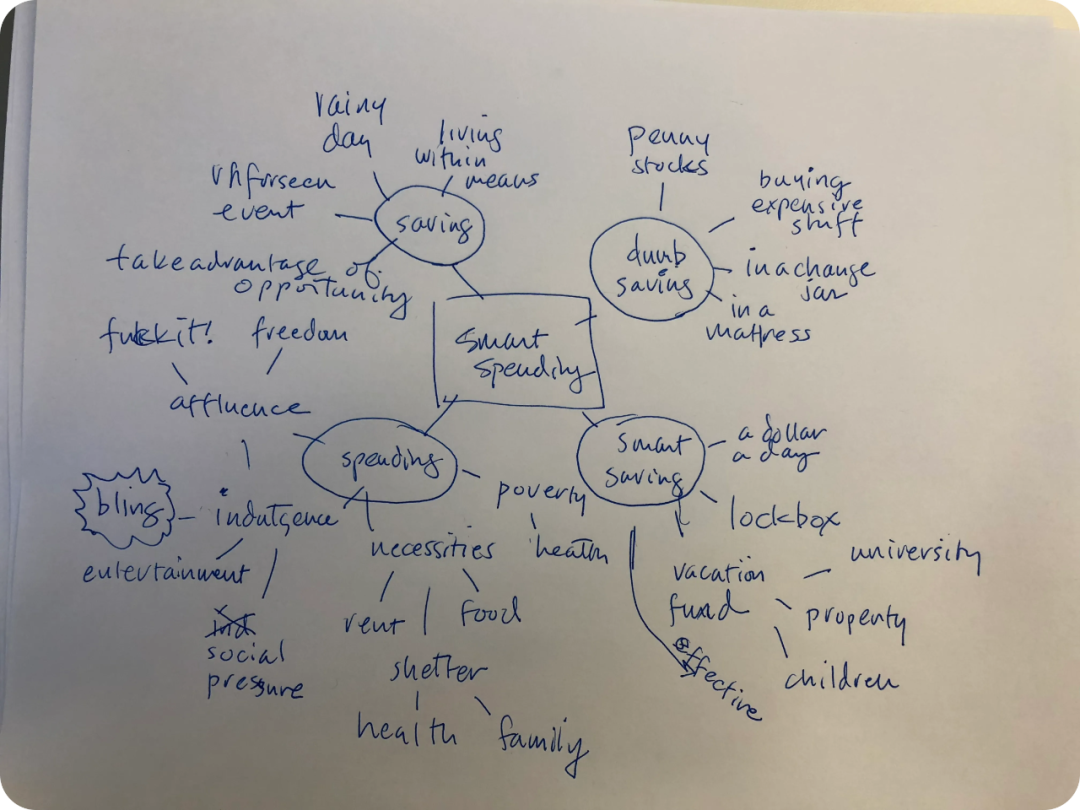 rainy
day
living
within
means
unforseen
event
saving
take advantage of
opportunity
penny
stocks
buying
expensive
stuff
dumb
saving
in a change
jar
in a
mattress
smart
spending
fuckit!
freedom
affluence
spending
smart
saving
a dollar
a day
bling
indulgence
poverty
lockbox
entertainment
necessities
health
university
vacation
fund
property
rent
food
social
pressure
shelter
effective
children
health
family